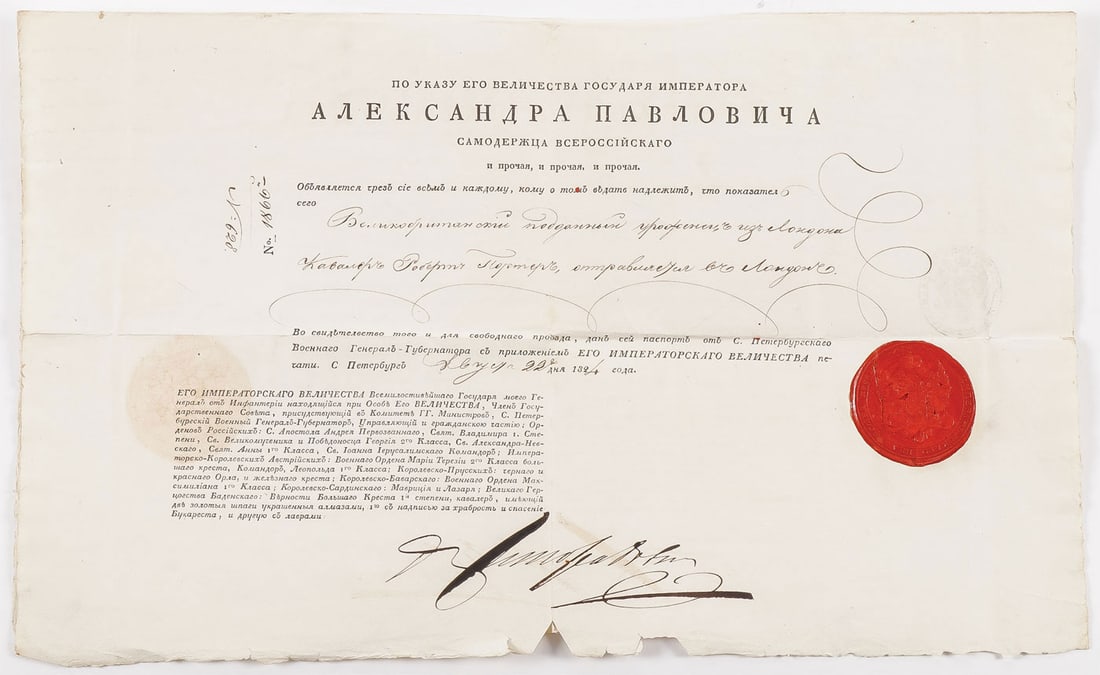 ПО УКАЗУ ЕГО ВЕЛИЧЕСТВА ГОСУДАРЯ ИМПЕРАТОРА
АЛЕКСАНДРА ПАВЛОВИЧА
САМОДЕРЖЦА ВСЕРОССІЙСКАГО
и прочая, и прочая, и прочая.
Объявляется чрезъ сіе всѣмъ и каждому, кому о томъ вѣдать надлежитъ, что показатель
сего
Великобританскій подданный уроженецъ изъ Лондона
Кавалеръ Робертъ Портеръ, отправляется въ Лондонъ.
No. 1866
N 628
Во свидѣтельство того и для свободнаго проѣзда, данъ сей паспортъ отъ С. Петербургскаго
Военнаго Генералъ-Губернатора съ приложеніемъ ЕГО ИМПЕРАТОРСКАГО ВЕЛИЧЕСТВА пе-
чати. С Петербургъ Августа 22 дня 1824 года.
ЕГО ИМПЕРАТОРСКАГО ВЕЛИЧЕСТВА Всемилостивѣйшаго Государя моего Ге-
нералъ отъ Инфантеріи находящійся при Особѣ Его ВЕЛИЧЕСТВА, Членъ Госу-
дарственнаго Совѣта, присутствующій въ Комитетѣ ГГ. Министровъ, С. Петер-
бургскій Военный Генералъ-Губернаторъ, Управляющій и гражданскою частію; Ор-
деновъ Россійскихъ: С. Апостола Андрея Первозваннаго, Свят. Владимира 1. Сте-
пени, Св. Великомученика и Побѣдоносца Георгія 2го Класса, Св. Александра-Нев-
скаго, Свят. Анны 1го Класса, Св. Іоанна Іерусалимскаго Командоръ; Импера-
торско-Королевскихъ Австрійскихъ: Военнаго Ордена Маріи Терезіи 2го Класса боль-
шаго креста, Командоръ, Леопольда 1го Класса; Королевско-Прусскихъ: чернаго и
краснаго Орла, и желѣзнаго креста; Королевско-Баварскаго: Военнаго Ордена Мак-
симиліана 1го Класса; Королевско-Сардинскаго: Маврикія и Лазаря; Великаго Гер-
цогства Баденскаго: Вѣрности Большаго Креста 1й степени, кавалеръ, имѣющій
двѣ золотыя шпаги украшенныя алмазами, 1ю съ надписью за храбрость и спасеніе
Букареста, и другую съ лаврами